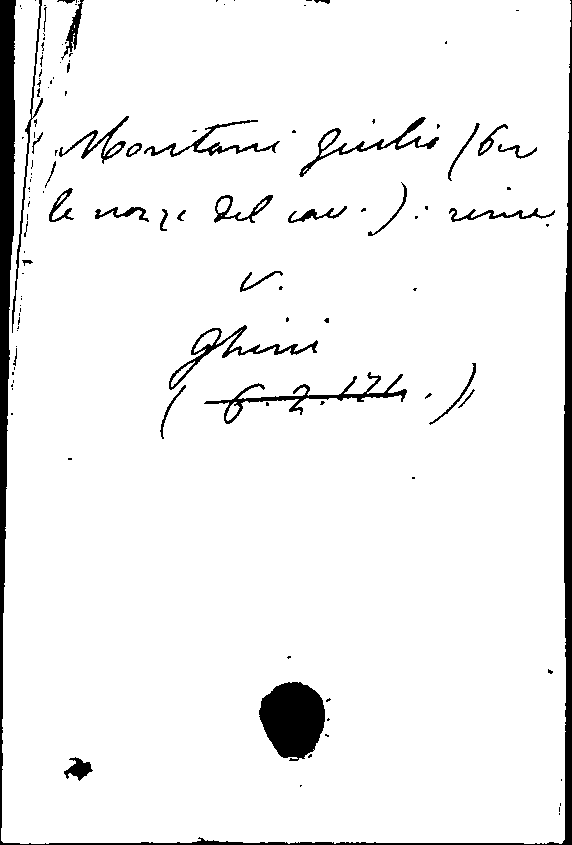 Montani Giulio (Per
le nozze del cav.): rime.
v.
Ghini
( 6.2.171. )